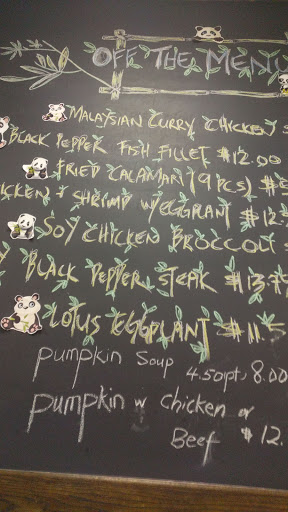 OFF THE MENU
MALAYSIAN CURRY CHICKEN $
BLACK PEPPER FISH FILLET $12.00
FRIED CALAMARI (9 PCS) $
SHRIMP W/EGGPLANT $12.
SOY CHICKEN BROCCOLI $
BLACK PEPPER STEAK $13.
LOTUS EGGPLANT $11.5
pumpkin Soup 4.50pt, 8.00
pumpkin w chicken or
Beef $12.